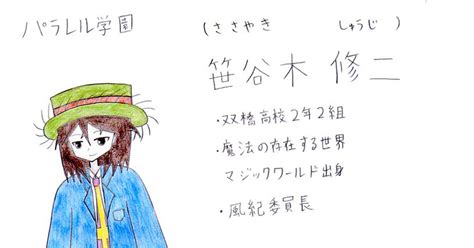 パラレル学園
(ささやき しゅうじ)
笹谷木 修二
・双橋高校2年2組
・魔法の存在する世界
マジックワールド出身
・風紀委員長